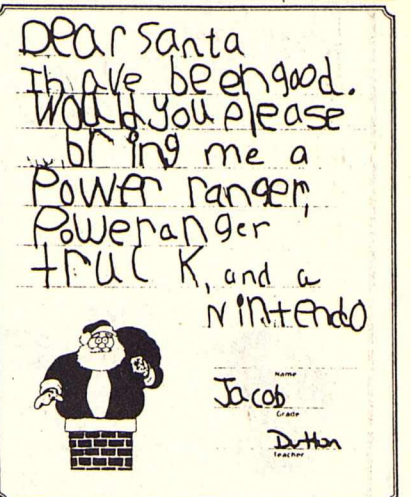 Dear Santa
I have been good.
Would you please
bring me a
Power ranger,
Poweranger
truck, and a
Nintendo
Name
Jacob
Grade
Dutton
Teacher